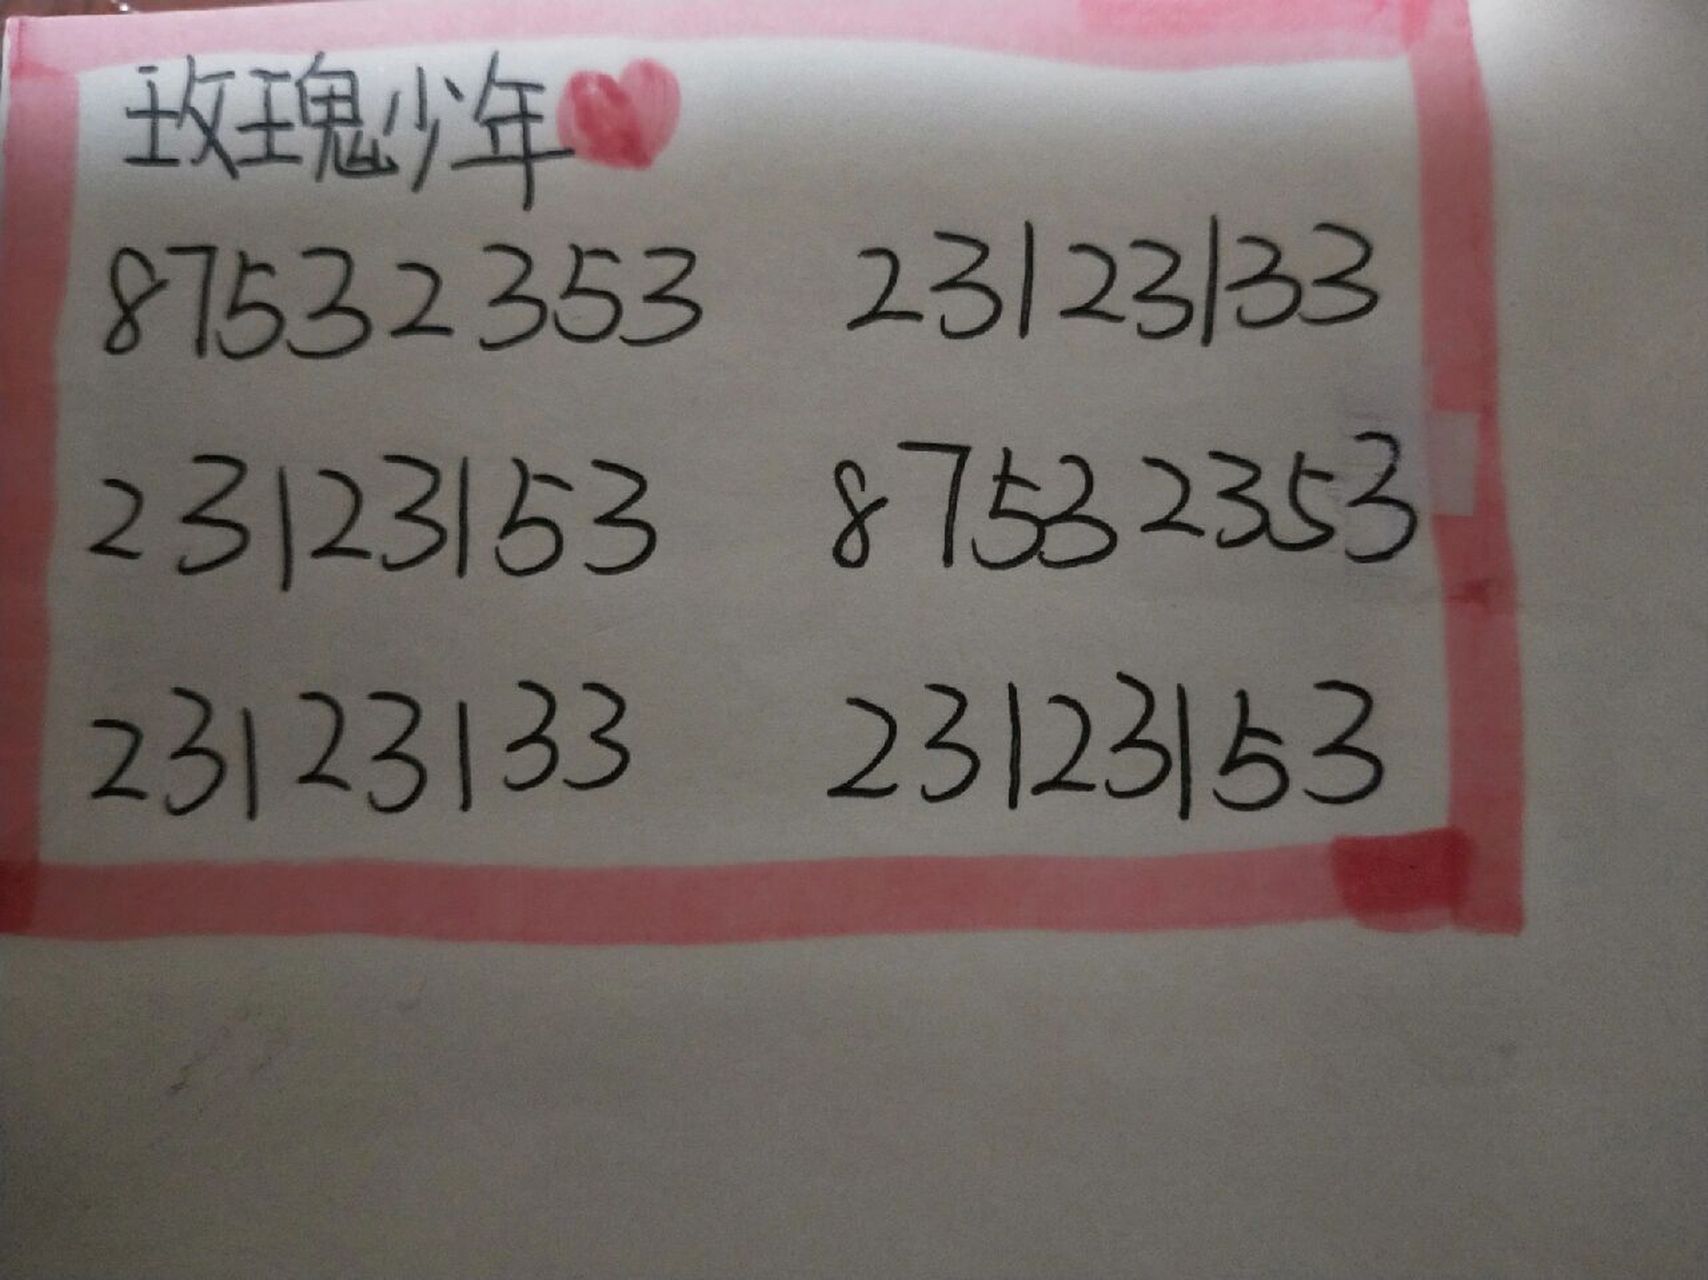 玫瑰少年
87532353 23123133
23123153 87532353
23123133 23123153